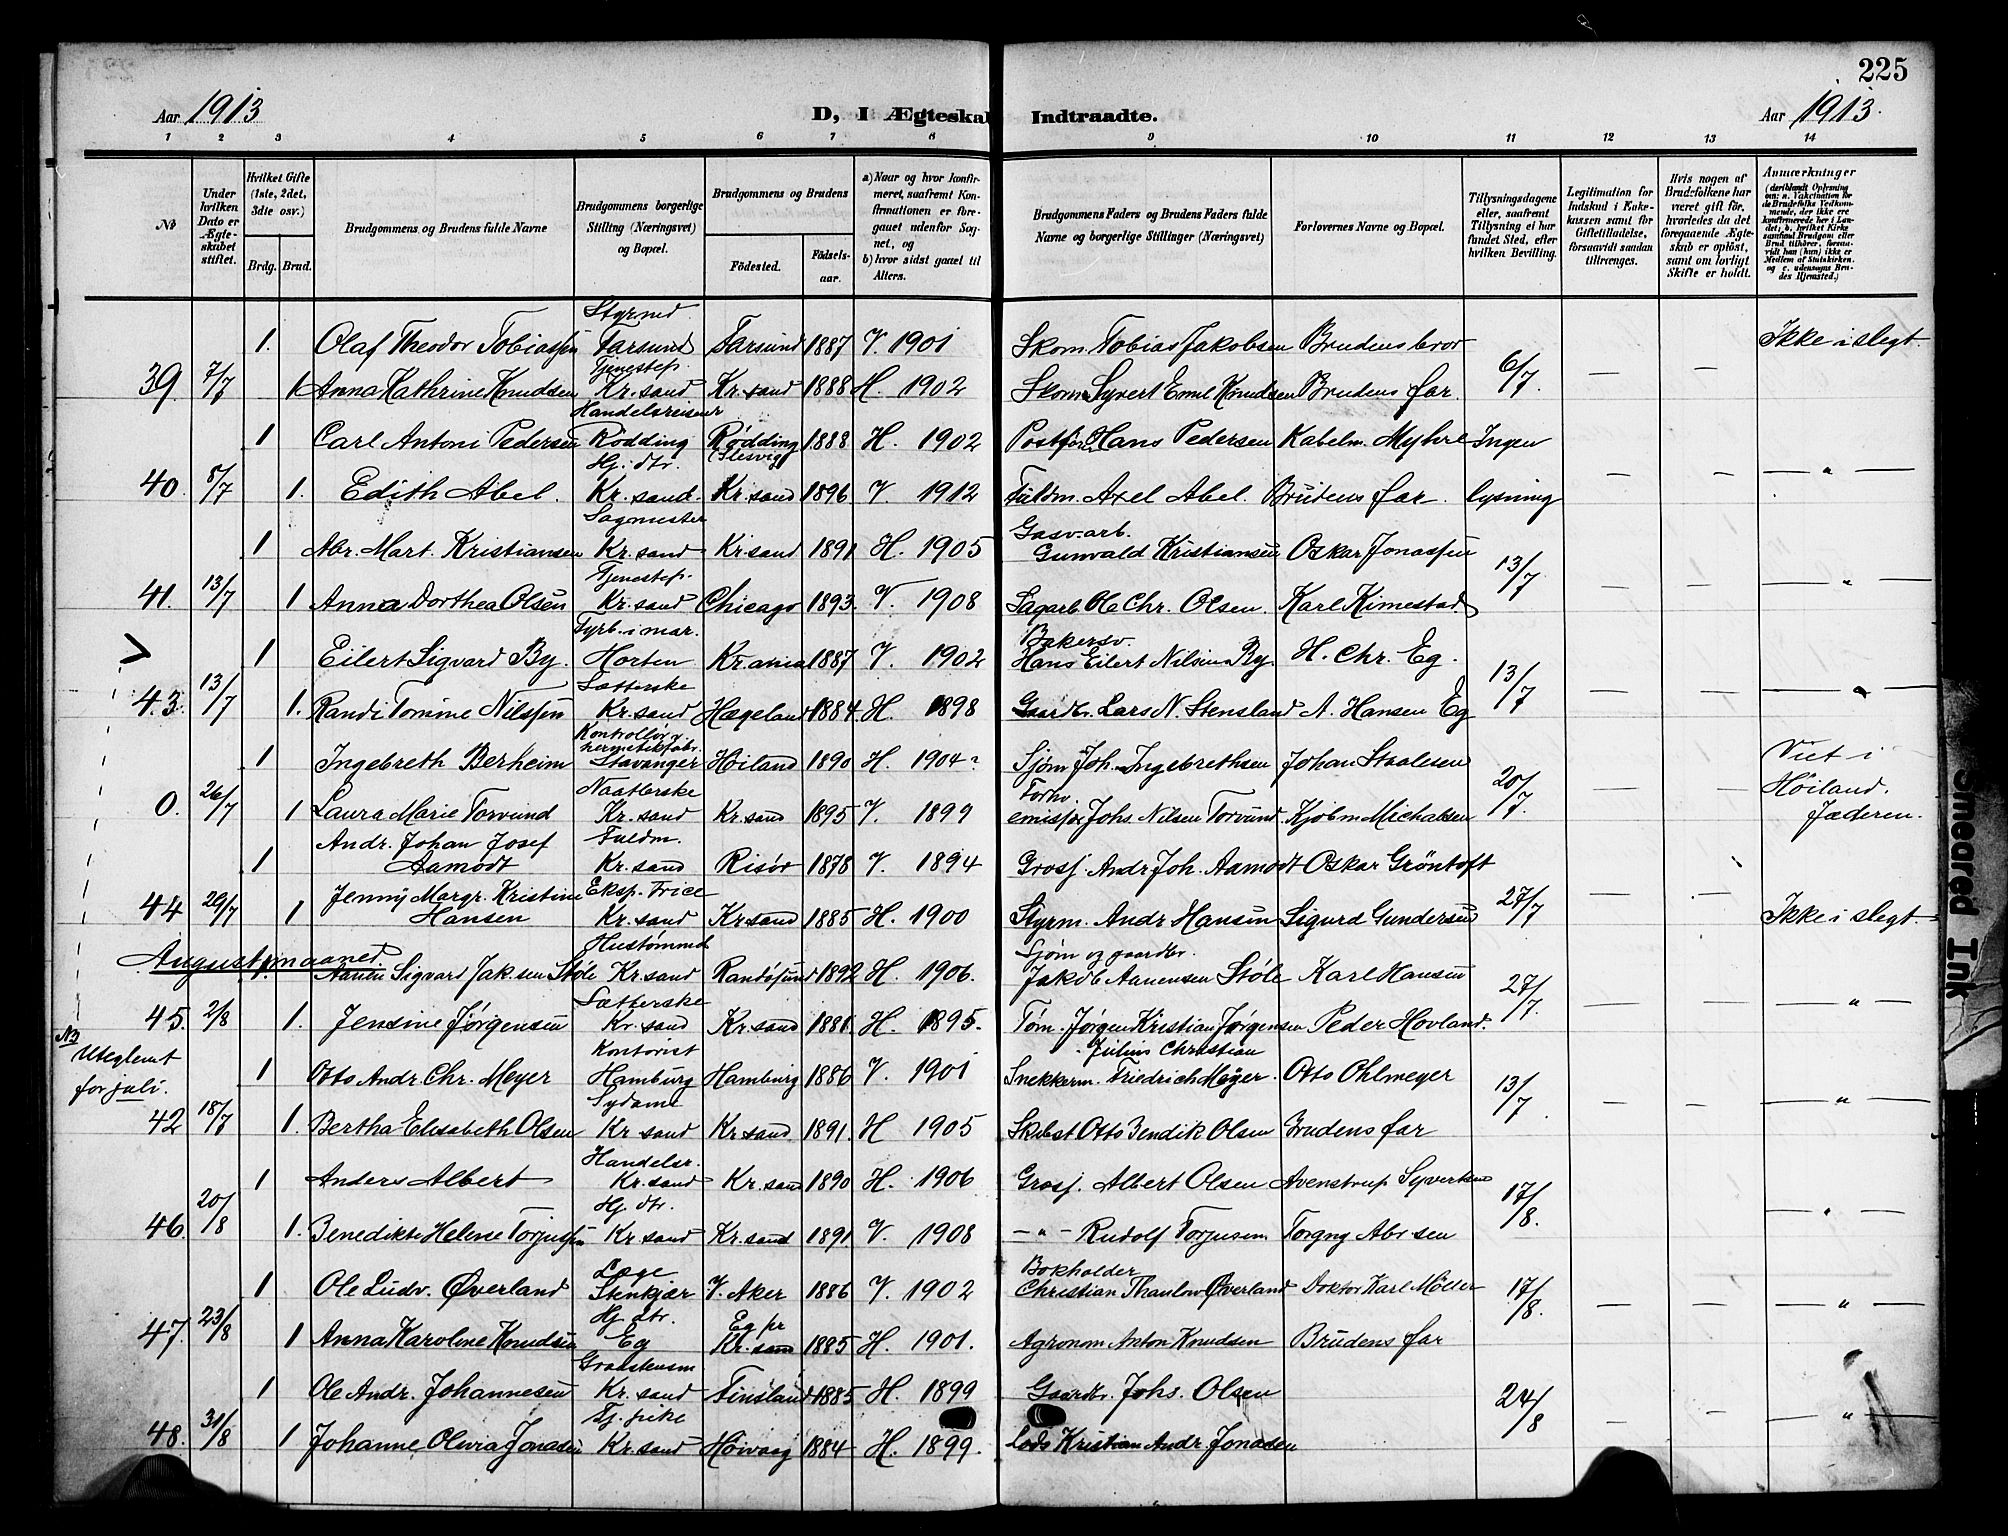 225
Aar 1913 D, I Ægteskab Indtraadte. Aar 1913.
1 2 3 4 5 6 7 8 9 10 11 12 13 14
No
Under hvilken Dato er Ægteskabet stiftet.
Hvilket Gifte (1ste, 2det, 3die osv.)
Brdg. Brud.
Brudgommens og Brudens fulde Navne
Brudgommens borgerlige Stilling (Næringsvei) og Bopæl.
Brudgommens og Brudens
Födested. Födselsaar.
a) Naar og hvor konfirmeret, saafremt Konfirmationen er foregaaet udenfor Sognet, og
b) hvor sidst gaaet til Alters.
Brudgommens Faders og Brudens Faders fulde Navne og borgerlige Stillinger (Næringsvei)
Forlovernes Navne og Bopæl.
Tillysningsdagene eller, saafremt Tillysning ei har fundet Sted, efter hvilken Bevilling.
Legitimation for Indskud i Enkekassen samt for Giftetilladelse, forsaavidt saadan tiltrænges.
Hvis nogen af Brudefolkene har været gift før, hvorledes da det foregaaende Ægteskab er opløst, samt om lovligt Skifte er holdt.
Anmærkninger
Styrmd.
1. Olaf Theodor Tobiassen Farsund Farsund 1887 V. 1901 Skom. Tobias Jakobsen Brudens bror Ikke i slegt.
Tjenestep.
39. 7/7 1 Anna Kathrine Knudsen Kr.sand Kr.sand 1888 H. 1902 Skom. Syvert Emil Knudsen Brudens far. 6/7. — —
Handelsreisener
1 Carl Antoni Pedersen Rødding Rødding (Slesvig) 1888 H. 1902 Hans Pedersen Kabelm. Myhre Ingen
Hj. dtr.
40. 8/7 1. Edith Abel. Kr.sand. Kr.sand 1896 V. 1912 Fuldm. Axel Abel. Brudens far. lysning — — — " —
Sagmester Gasv.arb.
1 Abr. Mart. Kristiansen Kr.sand Kr.sand 1891 H. 1905 Gunvald Kristiansen Oskar Jonassen
Tjenestep.
41. 13/7 1 Anna Dorthea Olsen Kr.sand Chicago 1893. V. 1908 Sagarb. Ole Chr. Olsen. Karl Kimestad 13/7 — — — " —
Fyrb. i mar. Bakersv.
1 Eilert Sigvard By. Horten Kr.ania 1887 V. 1902 Hans Eilert Nilsen By. H. Chr. Eg.
Sætterske
43. 13/7 1. Randi Tomine Nilssen Kr.sand Hægeland 1884. H. 1898 Gaardbr. Lars N. Stensland A. Hansen Eg 13/7 — — — " —
Kontrollør v. hermetikfabr.
1 Ingebreth Berheim Stavanger Høiland 1890 H. 1904 Sjøm. Joh. Ingebrethsen Johan Staalesen Viet i
Naatlerske
0. 26/7 1 Laura Marie Torvund Kr.sand Kr.sand 1895 V. 1899 Johs. Nilsen Torvund Kjøbm. Michalsen 20/7. — — Høiland, Jæderen.
Andr. Johan Josef Fuldm.
1 Aamodt Kr.sand Risør 1878 V. 1894 Grosj. Andr. Joh. Aamodt Oskar Gröntoft
Jenny Margr. Kristine Eksp.trice
44 29/7 1 Hansen Kr.sand Kr.sand 1885 H. 1900 Styrm. Andr Hansen Sigurd Gundersen 27/7 — — Ikke i slegt.
August maaned
Hustømmrd Sjøm og gaardbr.
1. Aanen Sigvard Jak.sen Støle Kr.sand Randøsund 1892 H. 1906. Jakob Aanensen Støle Karl Hansen
Sætterske
45. 2/8 1. Jensine Jørgensen Kr.sand Kr.sand 1881. H. 1895. Tøm. Jørgen Kristian Jørgensen Peder Hovland. 27/7. — — — " —
NB
Uteglemt for juli.
Kontorist Julius Christian
1 Otto Andr. Chr. Meyer Hamburg Hamburg 1886 V. 1901 Snekkerm. Friedrich Meyer. Otto Ohlmeyer
Sydame
42 18/7 1. Bertha Elisabeth Olsen Kr.sand Kr.sand 1891 H 1905 Otto Bendik Olsen Brudens far 13/7 — — — " —
Handelsr.
1 Anders Albert Kr.sand Kr.sand 1890 H. 1906 Grosj. Albert Olsen Avenstrup Syvertsen
Hj. dtr.
46. 20/8 1. Benedikte Helene Torjussen Kr.sand Kr.sand 1891 V. 1908 — " — Rudolf Torjusen Torgny Abr.sen 17/8. — " —
Læge Bokholder
1 Ole Ludv. Øverland Stenkjær V. Aker 1886 V. 1902 Christian Thaulow Øverland Doktor Karl Møller
Hj dtr. Eg pr
47. 23/8 1 Anna Karoline Knudsen Eg Kr.sand 1885 H. 1901. Agronom Anton Knudsen Brudens far 17/8. — — — " —
Graastensm
1 Ole Andr. Johannesen Kr.sand Finsland 1885 H. 1899 Gaardbr. Johs. Olsen
Tj. pike
48. 31/8 1 Johanne Olivia Jonasen Kr.sand Høivaag 1884 H. 1899. Lods Kristian Andr. Jonasen 24/8 — — — " —
Smeared Ink